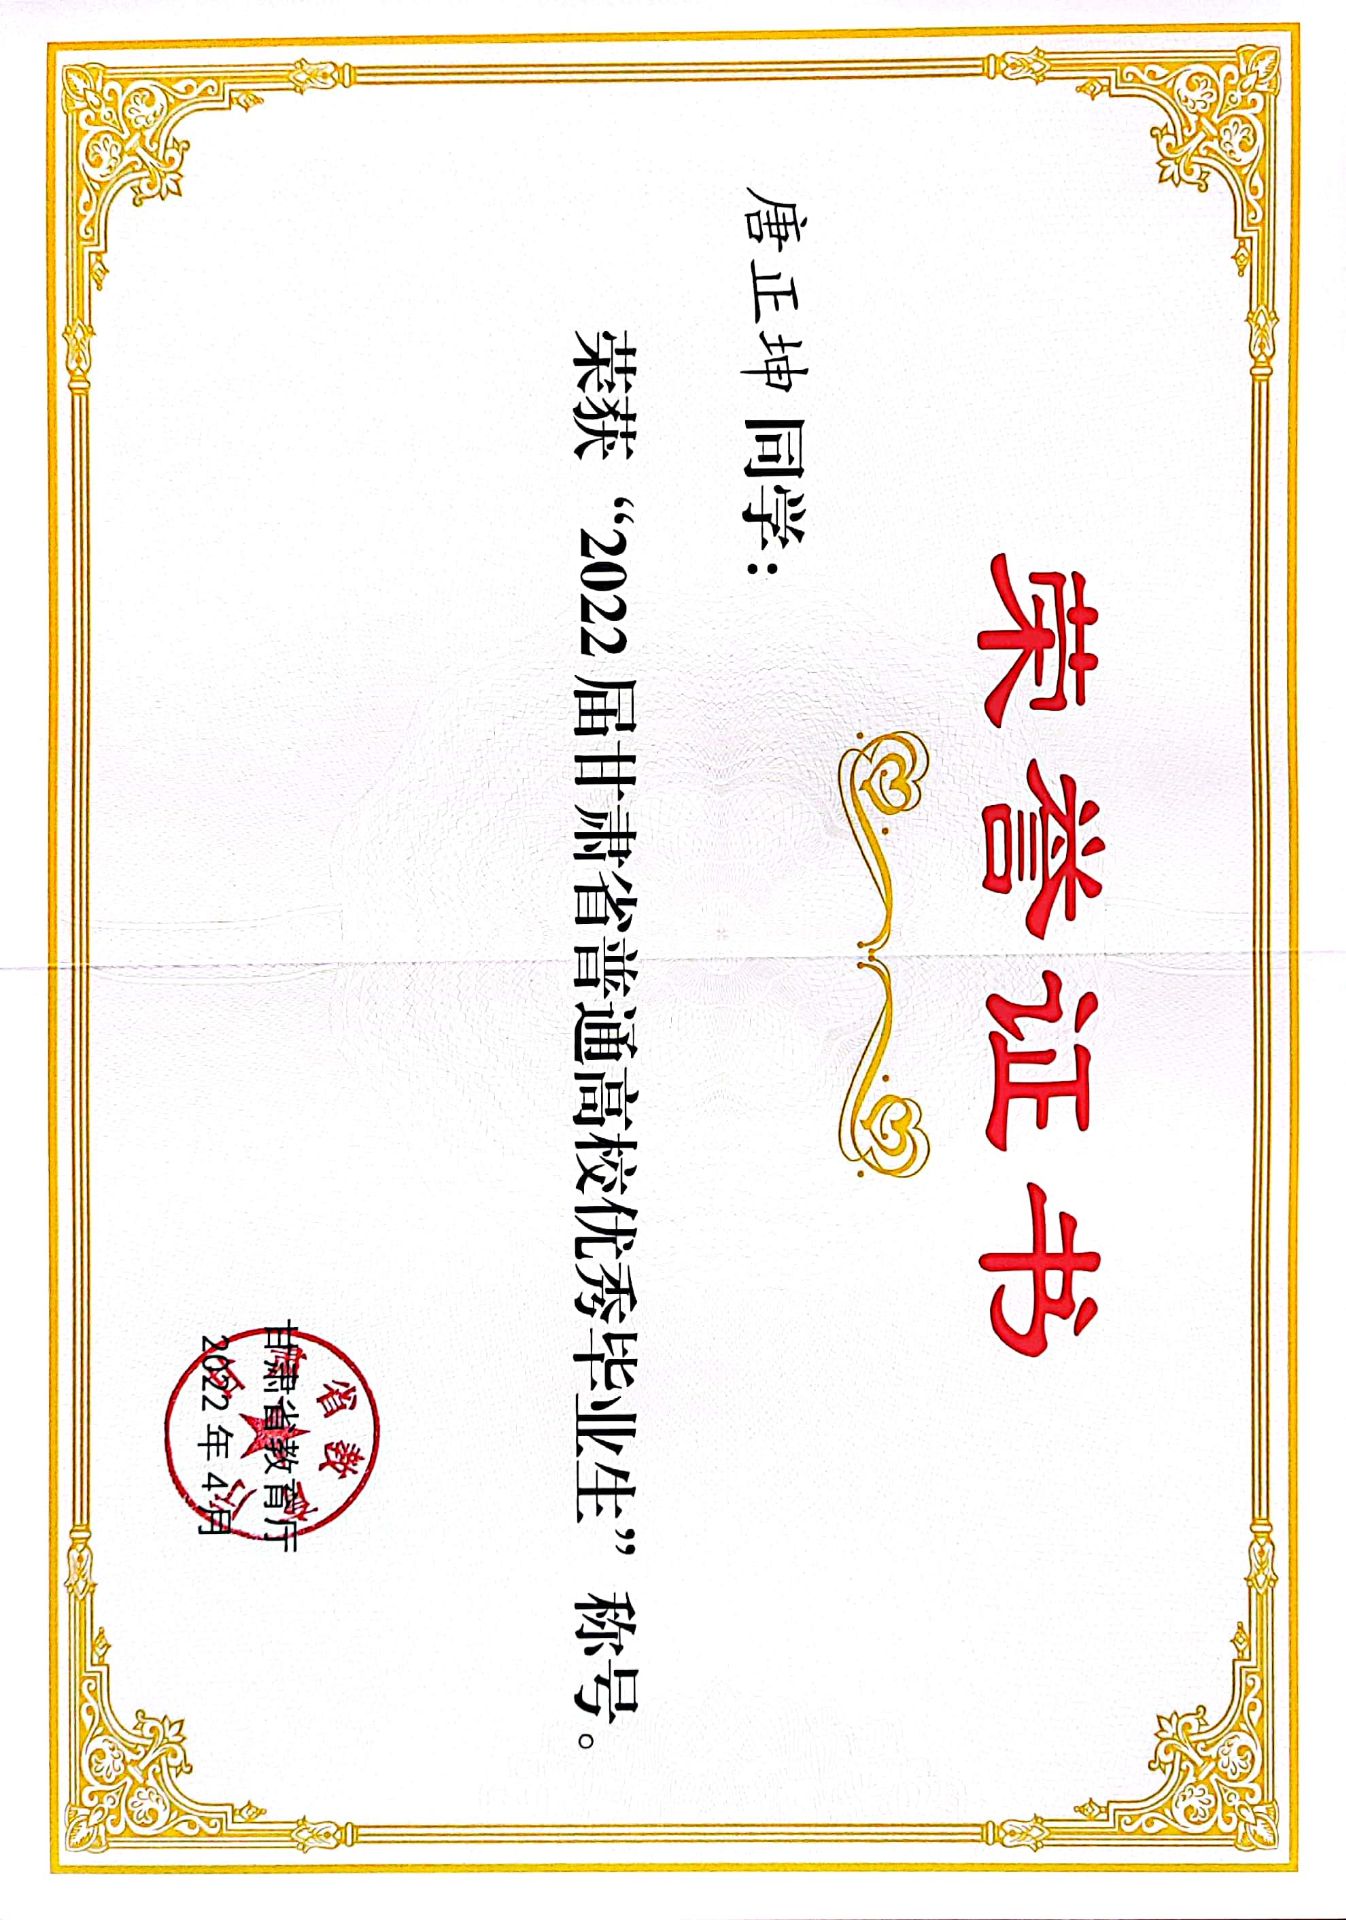 荣誉证书
唐正坤 同学：
荣获“2022届甘肃省普通高校优秀毕业生”称号。
甘肃省教育厅
2022年4月